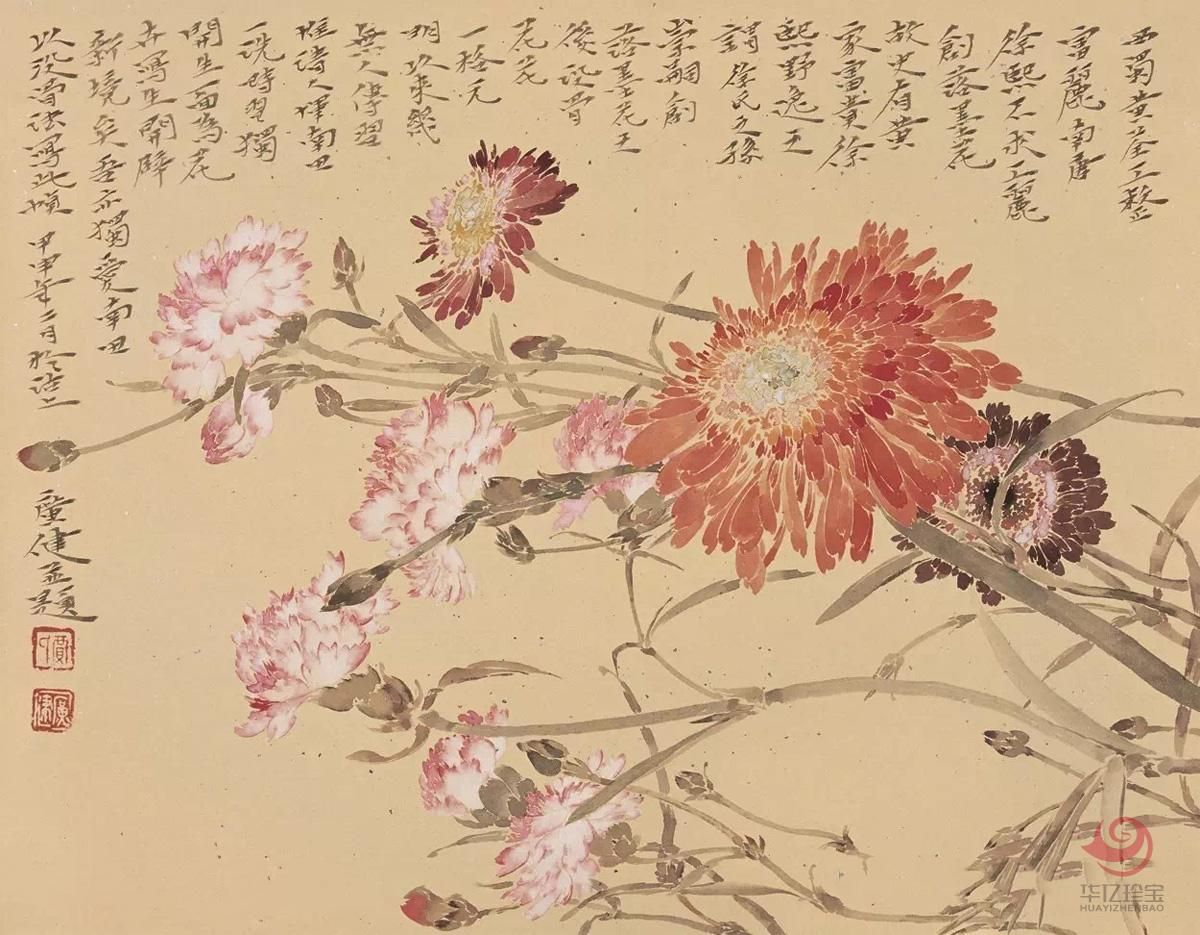 西蜀黄荃工整
富麗南唐
徐熙不求工麗
創落墨花
故史有黄
家富貴徐
熙野逸
謂徐氏之孫
崇嗣創
落墨花
後没骨
花
一格元
明以来幾
無人傳習
惟清人惲南田
一洗時習獨
開生面為花
卉寫生開辟
新境矣吾亦獨愛南田
以没骨法寫此幀 甲申年二月於上
廣健並題
賈
廣健
华亿珍宝
HUAYIZHENBAO